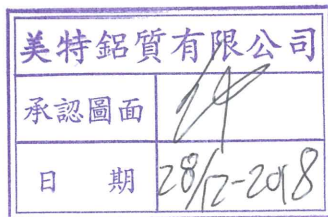 美特鋁質有限公司
承認圖面
日 期 28/12-2018